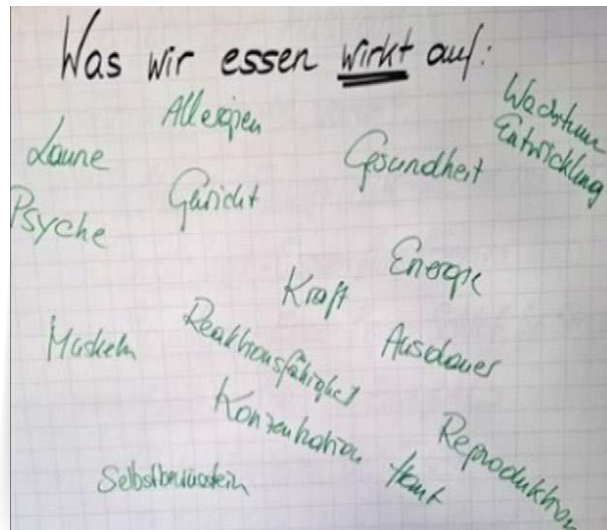 Was wir essen wirkt auf:
Allergien
Wachstum
Entwicklung
Laune
Gesundheit
Psyche
Gewicht
Energie
Kraft
Muskeln
Reaktionsfähigkeit
Ausdauer
Konzentration
Haut
Reproduktion
Selbstbewusstsein